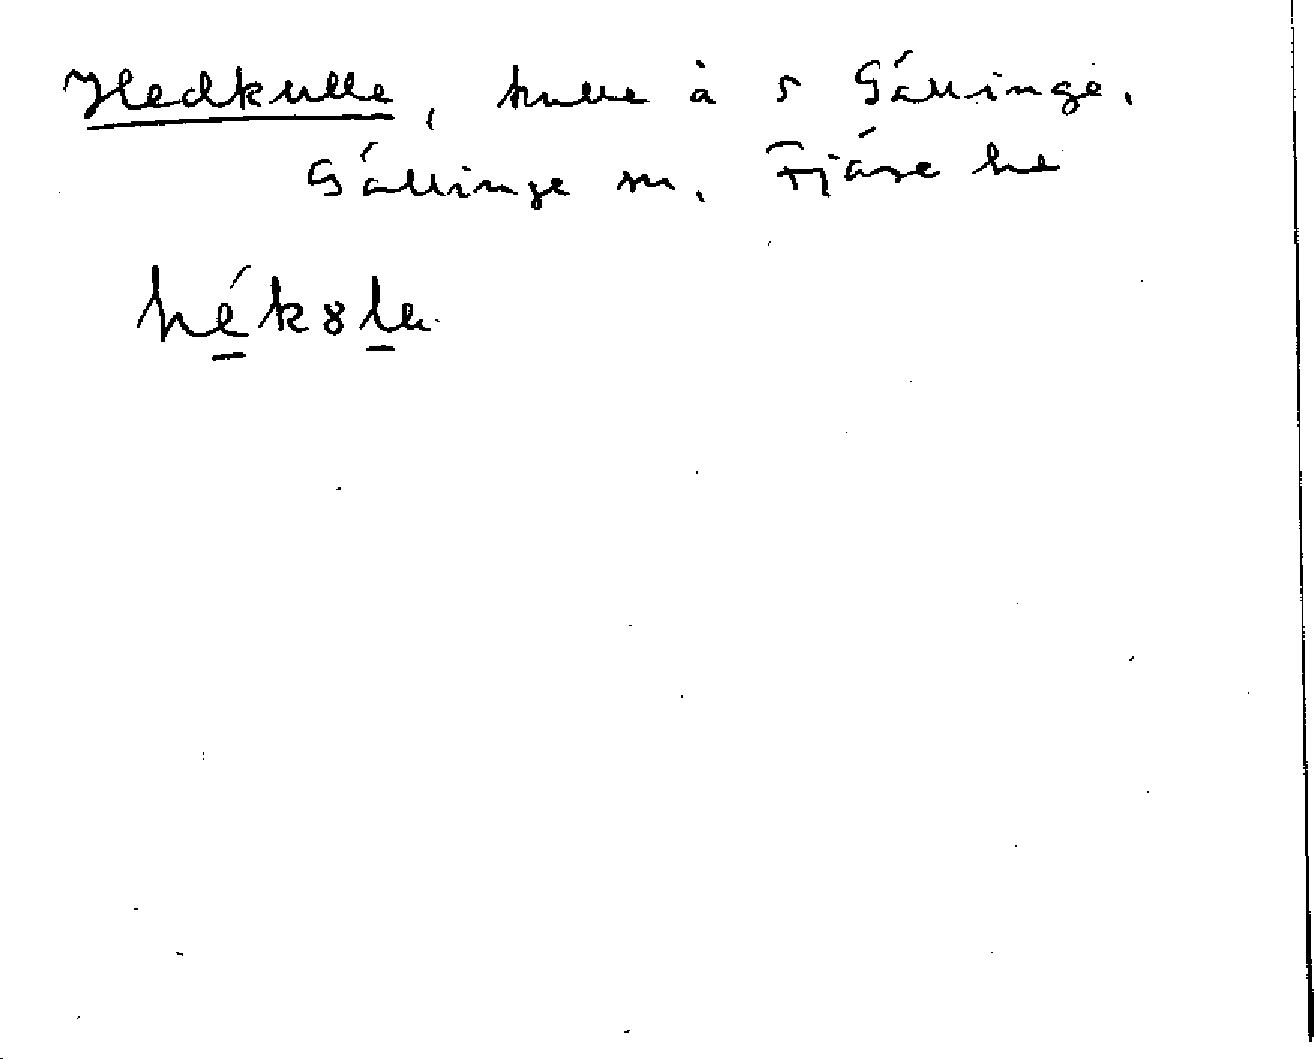 Hedkulle, kulle å s Gällinge,
Gällinge sn, Fjäre hd